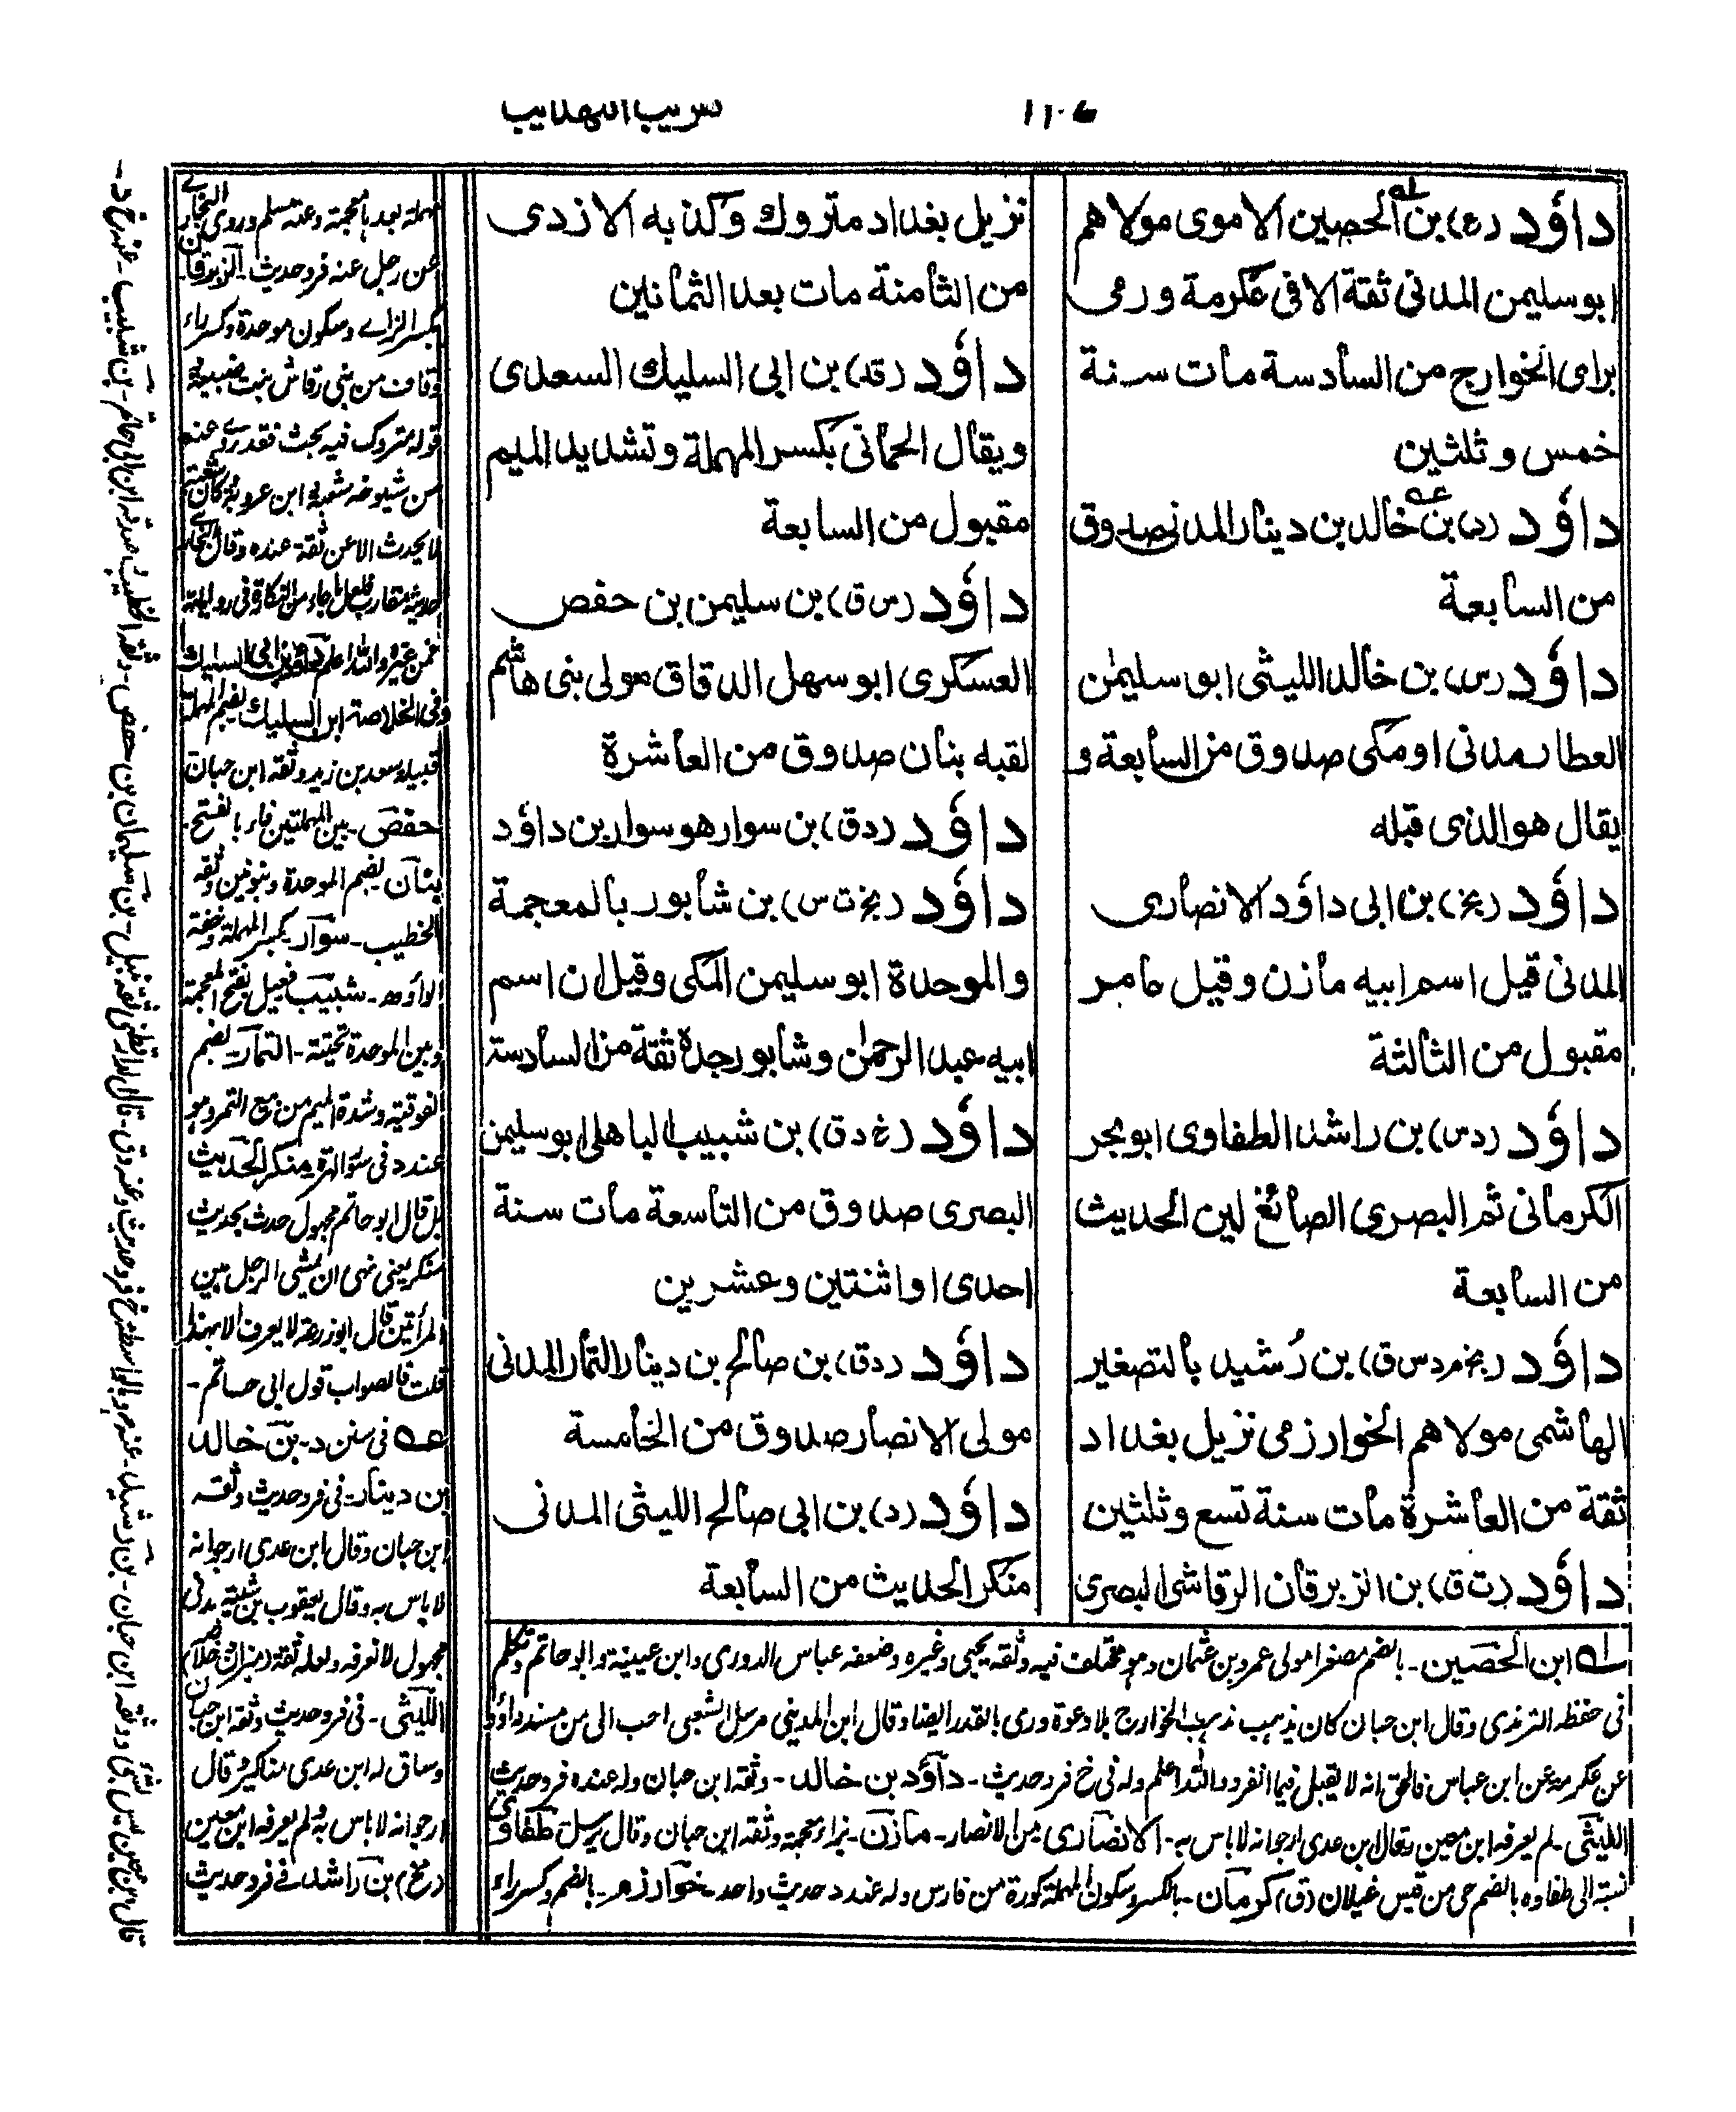 تقريب التهذيب
داؤد (ع) بن الحصين الاموى مولاهم
ابو سليمن المدنى ثقة الا فى عكرمة ورمى
براى الخوارج من السادسة مات سنة
خمس وثلثين
داؤد (د) بن خالد بن دينار المدنى صدوق
من السابعة
داؤد (س) بن خالد الليثى ابو سليمٰن
العطار مدنى او مكى صدوق من السابعة و
يقال هو الذى قبله
داؤد (بخ) بن ابى داؤد الانصارى
المدنى قيل اسم ابيه مازن وقيل عامر
مقبول من الثالثة
داؤد (د س) بن راشد الطفاوى ابو بحر
الكرمانى ثم البصرى الصائغ لين الحديث
من السابعة
داؤد (بخ م د س ق) بن رُشيد بالتصغير
الهاشمى مولاهم الخوارزمى نزيل بغداد
ثقة من العاشرة مات سنة تسع وثلثين
داؤد (ت ق) بن الزبرقان الرقاشى البصرى
نزيل بغداد متروك وكذبه الازدى
من الثامنة مات بعد الثمانين
داؤد (قد) بن ابى السليك السعدى
ويقال الحمانى بكسر المهملة وتشديد الميم
مقبول من السابعة
داؤد (س ق) بن سليمن بن حفص
العسكرى ابو سهل الدقاق مولى بنى هاشم
لقبه بنان صدوق من العاشرة
داؤد (د ق) بن سوار هو سوار بن داؤد
داؤد (بخ ت س) بن شابور بالمعجمة
والموحدة ابو سليمن المكى وقيل ان اسم
ابيه عبد الرحمٰن وشابور جده ثقة من السادسة
داؤد (خ د ق) بن شبيب الباهلى ابو سليمن
البصرى صدوق من التاسعة مات سنة
احدى او اثنتين وعشرين
داؤد (د ق) بن صالح بن دينار التمار المدنى
مولى الانصار صدوق من الخامسة
داؤد (د) بن ابى صالح الليثى المدنى
منكر الحديث من السابعة
ابن الحصين ـ بالضم مصغرا مولى عمرو بن عثمان وهو مختلف فيه وثقه يحيى وغيره وضعفه عباس الدورى وابن عيينة وابو حاتم وتكلم
فى حفظه الترمذى وقال ابن حبان كان يذهب مذهب الخوارج بلا دعوة ورمى بالقدر ايضا وقال ابن المدينى مرسل الشعبى احب الى من مسند داؤد
عن عكرمة عن ابن عباس فالحق انه لا يقبل فيما انفرد والله اعلم وله فى خ فرد حديث ـ داؤد بن خالد ـ وثقه ابن حبان وله عنده فرد حديث
الليثى ـ لم يعرفه ابن معين وقال ابن عدى ارجو انه لا باس به ـ الانصارى من الانصار ـ مازن ـ بزاء معجمة وثقه ابن حبان وقال يرسل طفاوى
نسبة الى طفاوه بالضم حى من قيس غيلان (ق) كرمان ـ بالكسر وسكون المهملة كورة من فارس وله عند د حديث واحد ـ خوارزم ـ بالضم وكسر راء
مهملة بعد ها معجمة وعنه مسلم وروى البخارى
عن رجل عنه فرد حديث ـ الزبرقان
بكسر الزاے وسكون موحدة وكسر راء
وقاف من بنى رقاش بنت ضبيعة
قوله متروك فيه بحث فقد روى عنه
من شيوخه شعبة ابن عروبة وكان شعبة
لا يحدث الا عن ثقة عنده وقال البخارى
حديثه مقارب فلعل ما جاء من النكارة فى رواياته
فمن غيره والله اعلم داؤد بن ابى السليك
وفى الخلاصة ابن السليك بضم المهملة
قبيلة سعد بن زيد وثقه ابن حبان
حفص ـ بين المهملتين فاء بالفتح ـ
بنان بضم الموحدة وبنونين وثقه
الخطيب ـ سوار ـ بكسر المهملة وخفة
الواو د ـ شبيب فعيل بفتح المعجمة
وبين الموحدة تحتية ـ التمار ـ بضم
الفوقية وشدة الميم من بيع التمر وهو
عند د فى سؤال الهرة منكر الحديث
بل قال ابو حاتم مجهول حدث بحديث
منكر يعنى نهى ان يمشى الرجل بين
المرأتين قال ابو زرعة لا يعرف الا بهذا
قلت فالصواب قول ابى حاتم ـ
عه فى سنن د ـ بن خالد
بن دينار ـ فى فرد حديث وثقه
ابن حبان وقال ابن عدى ارجو انه
لا باس به وقال يعقوب بن شيبة مدنى
مجهول لا نعرفه ولعله ثقة (ميزان خلاصه)
الليثى ـ فى فرد حديث وثقه ابن حبان
وساق له ابن عدى مناكير وقال
ارجو انه لا باس به ولم يعرفه ابن معين
(د بخ) بن راشد فى فرد حديث